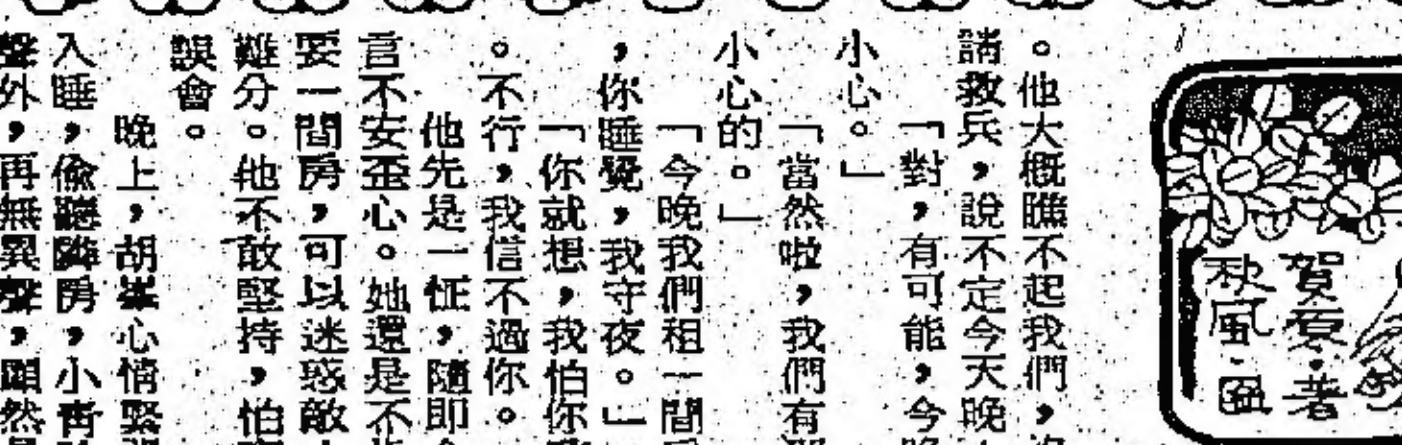 賀夏·著
秋風·圖
。他大概瞧不起我們,
請救兵,說不定今天晚
「對,有可能,今晚
小心。」
「當然啦,我們有
小心的。」
「今晚我們租一間
,你睡覺,我守夜。」
「你就想,我怕你
。不行,我信不過你。
他先是一怔,隨即
言不安歪心。她還是不
要一間房,可以迷惑敵
難分。他不敢堅持,怕
誤會。
晚上,胡峯心情緊
入睡,偸聽隣房,小靑
聲外,再無異聲,顯然